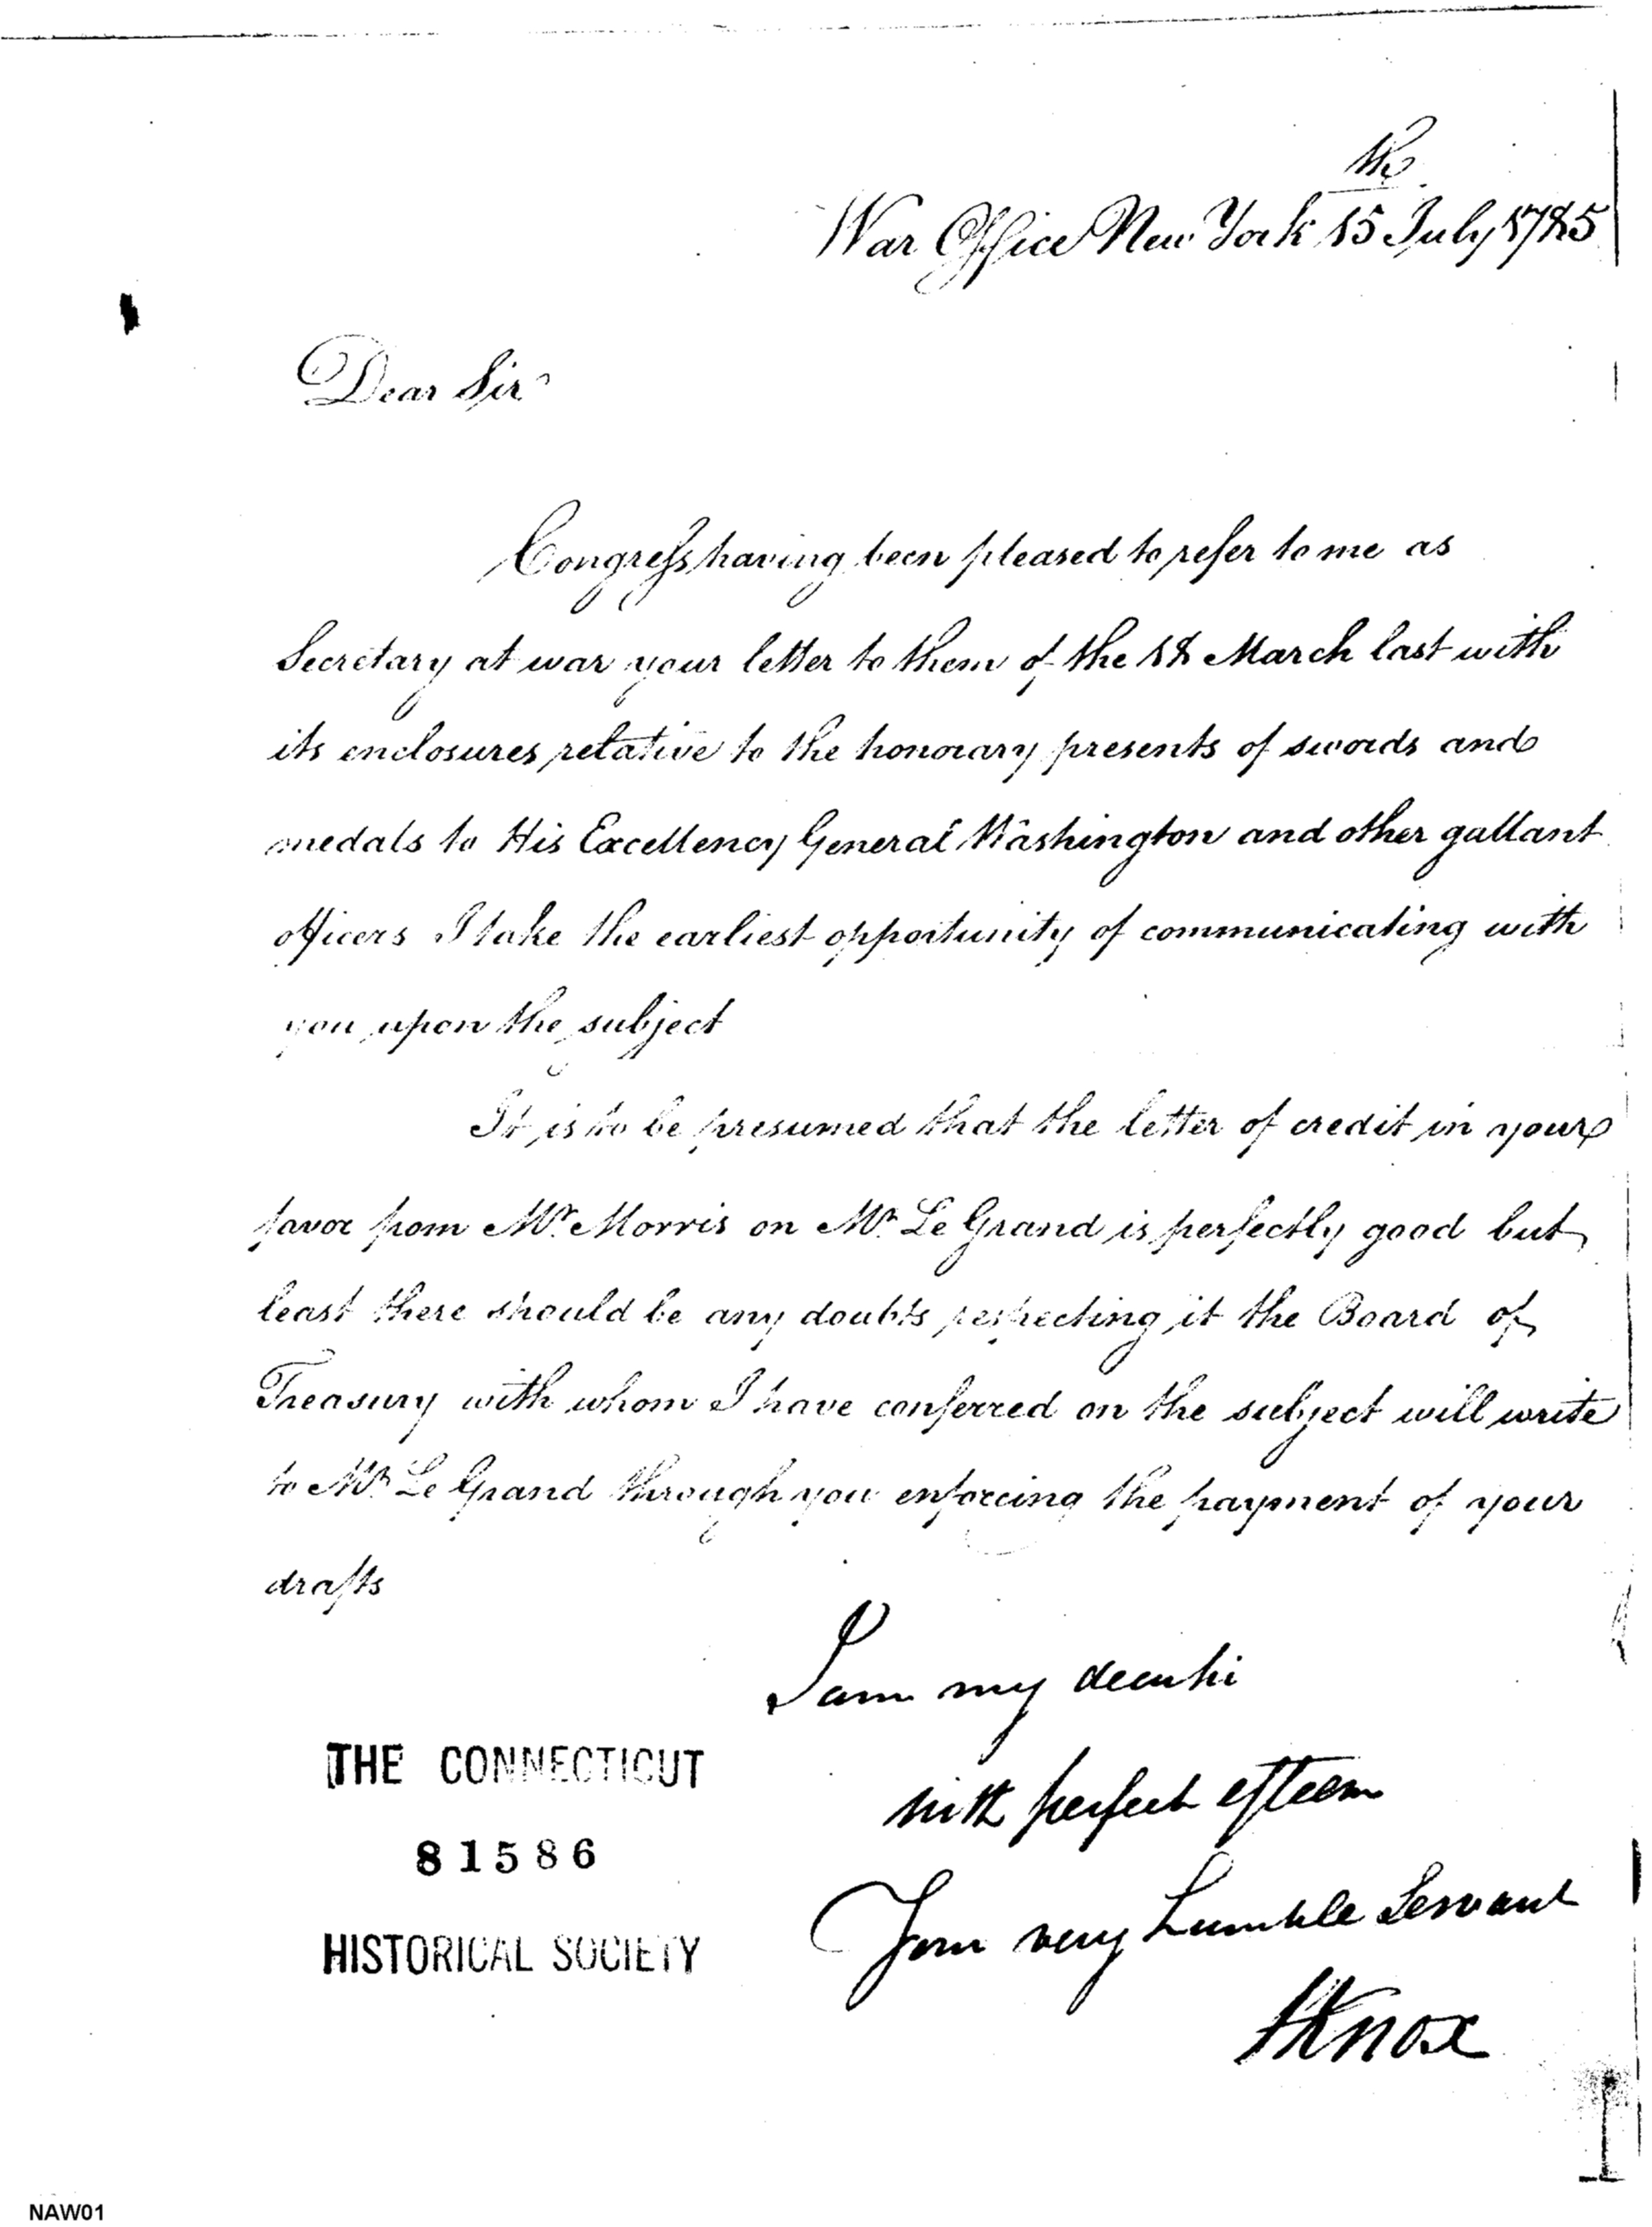 War Office New York 15th July 1785
Dear Sir
Congress having been pleased to refer to me as
Secretary at war your letter to them of the 18 March last with
its enclosures relative to the honorary presents of swords and
medals to His Excellency General Washington and other gallant
officers I take the earliest opportunity of communicating with
you upon the subject
It is to be presumed that the letter of credit in your
favor from Mr. Morris on Mr. Le Grand is perfectly good but
least there should be any doubts respecting it the Board of
Treasury with whom I have conferred on the subject will write
to Mr. Le Grand through you enforcing the payment of your
drafts
I am my dear Sir
with perfect esteem
Your very humble Servant
HKnox
THE CONNECTICUT
81586
HISTORICAL SOCIETY
NAW01